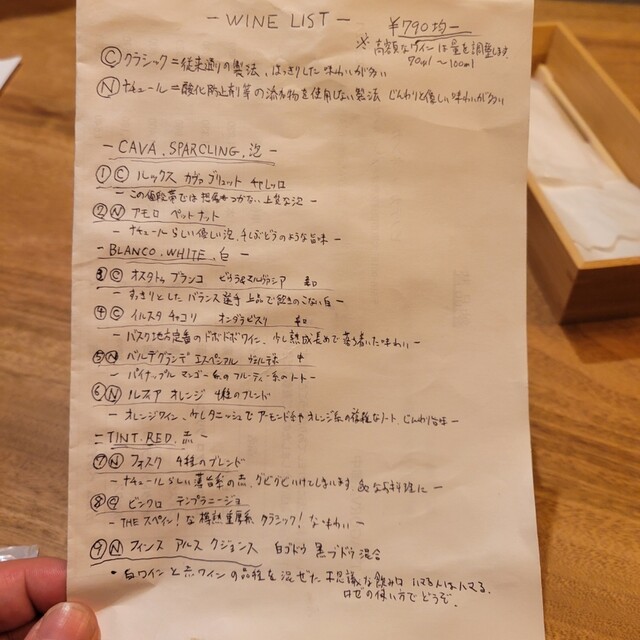 - WINE LIST -
¥790均一
※ 高額なワインは量を調整します
90ml～100ml
Ⓒ クラシック＝従来通りの製法、はっきりした味わいが多い
Ⓝ ナチュール＝酸化防止剤等の添加物を使用しない製法 じんわりと優しい味わいが多い
- CAVA.SPARCLING.泡 -
①Ⓒ ルックス カヴァ ブリュット チャレッロ
- この価格帯では 上質な泡 -
②Ⓝ アモロ ペットナット
- ナチュールらしい優しい泡、干しぶどうのような旨味 -
- BLANCO.WHITE.白 -
③Ⓒ オスタトゥ ブランコ ビウラ&マルヴァシア
- すっきりとした バランス選手 上品で飽きのこない白 -
④Ⓒ イルスタ チャコリ オンダラビスリ
- バスク地方定番のドボドボワイン、少し熟成長めで落ち着いた味わい -
⑤Ⓝ バルデグランデ エスペシアル ヴェルデホ
- パイナップル マンゴー系の フルーティー系のノート -
⑥Ⓝ オレンジ 4種のブレンド
- オレンジワイン、少しタニッシュで アーモンドやオレンジ系の複雑なノート、じんわり旨味 -
- TINT.RED.赤 -
⑦Ⓝ フォスク 4種のブレンド
- ナチュールらしい薄旨系の赤、グビグビいけてしまいます な料理に -
⑧Ⓒ ビンクロ テンプラニージョ
- THE スペイン！な 樽熟重厚系 クラシック！な味わい -
⑨Ⓝ フィンス アルス クジョンス 白ブドウ 黒ブドウ 混合
・白ワインと赤ワインの品種を混ぜた不思議な飲み口 ハマる人はハマる。
ロゼの使い方でどうぞ。